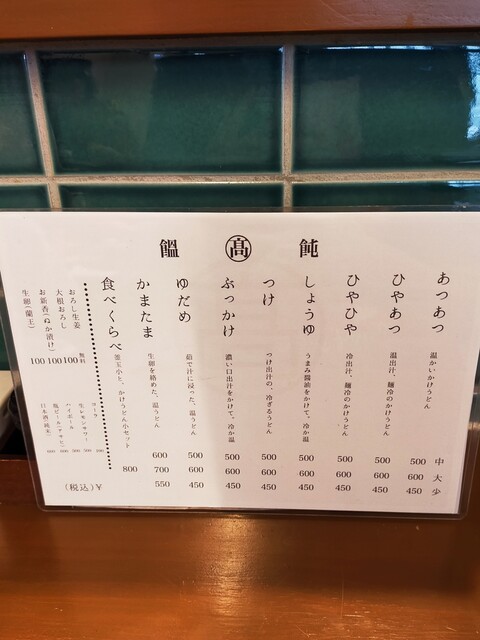 饂 髙 飩
中 大 少
あつあつ 温かいかけうどん 500 600 450
ひやあつ 温出汁、麺冷のかけうどん 500 600 450
ひやひや 冷出汁、麺冷のかけうどん 500 600 450
しょうゆ うまみ醤油をかけて。冷か温 500 600 450
つけ つけ出汁の、冷ざるうどん 500 600 450
ぶっかけ 濃い口出汁をかけて。冷か温 500 600 450
ゆだめ 茹で汁に浸った、温うどん 500 600 450
かまたま 生卵を絡めた。温うどん 600 700 550
食べくらべ 釜玉小と、かけうどん小セット 800
おろし生姜 無料
大根おろし 100
お新香(ぬか漬け) 100
生卵(蘭王) 100
コーラ
生レモンサワー
ハイボール
瓶ビール(アサヒ)
日本酒(純米)
(税込)¥